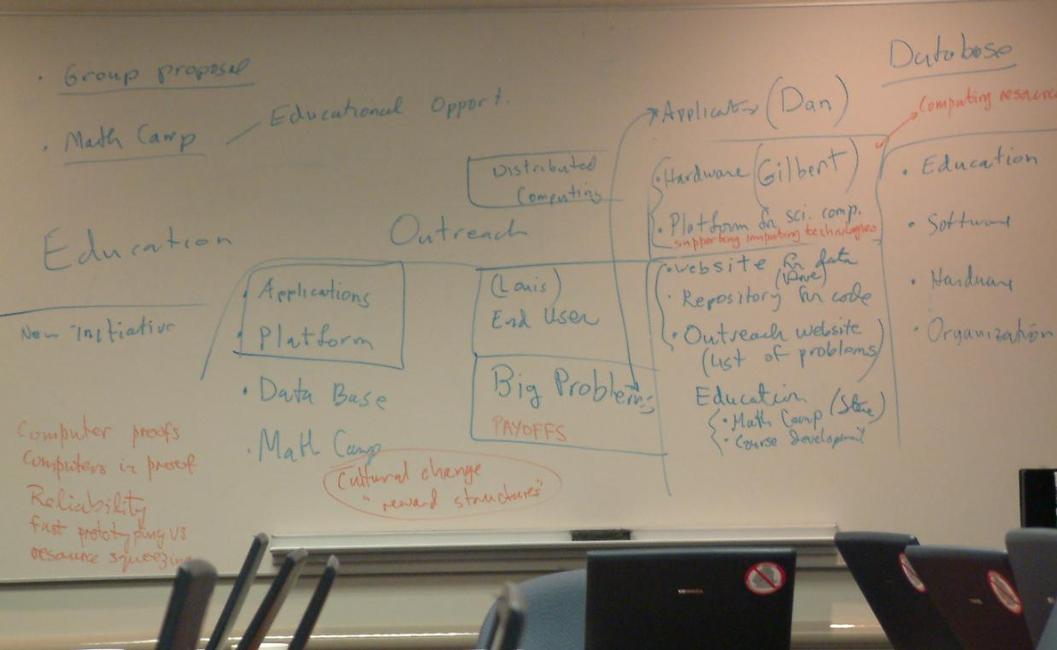 • Group proposal
• Math Camp
Educational Opport.
Education
New Initiative
Computer proofs
Computers in proof
Reliability
fast prototyping vs
resource squeezing
Outreach
• Applications
• Platform
• Data Base
• Math Camp
Cultural change
"reward structures"
Distributed
Computing
(Louis)
End User
Big Problems
PAYOFFS
(Dan)
• Hardware (Gilbert)
• Platform for sci. comp.
supporting computing technologies
• website for data
• Repository for code
• Outreach website
(list of problems)
Education (Steve)
• Math Camp
• Course development
Database
Computing resource
• Education
• Software
• Hardware
• Organization